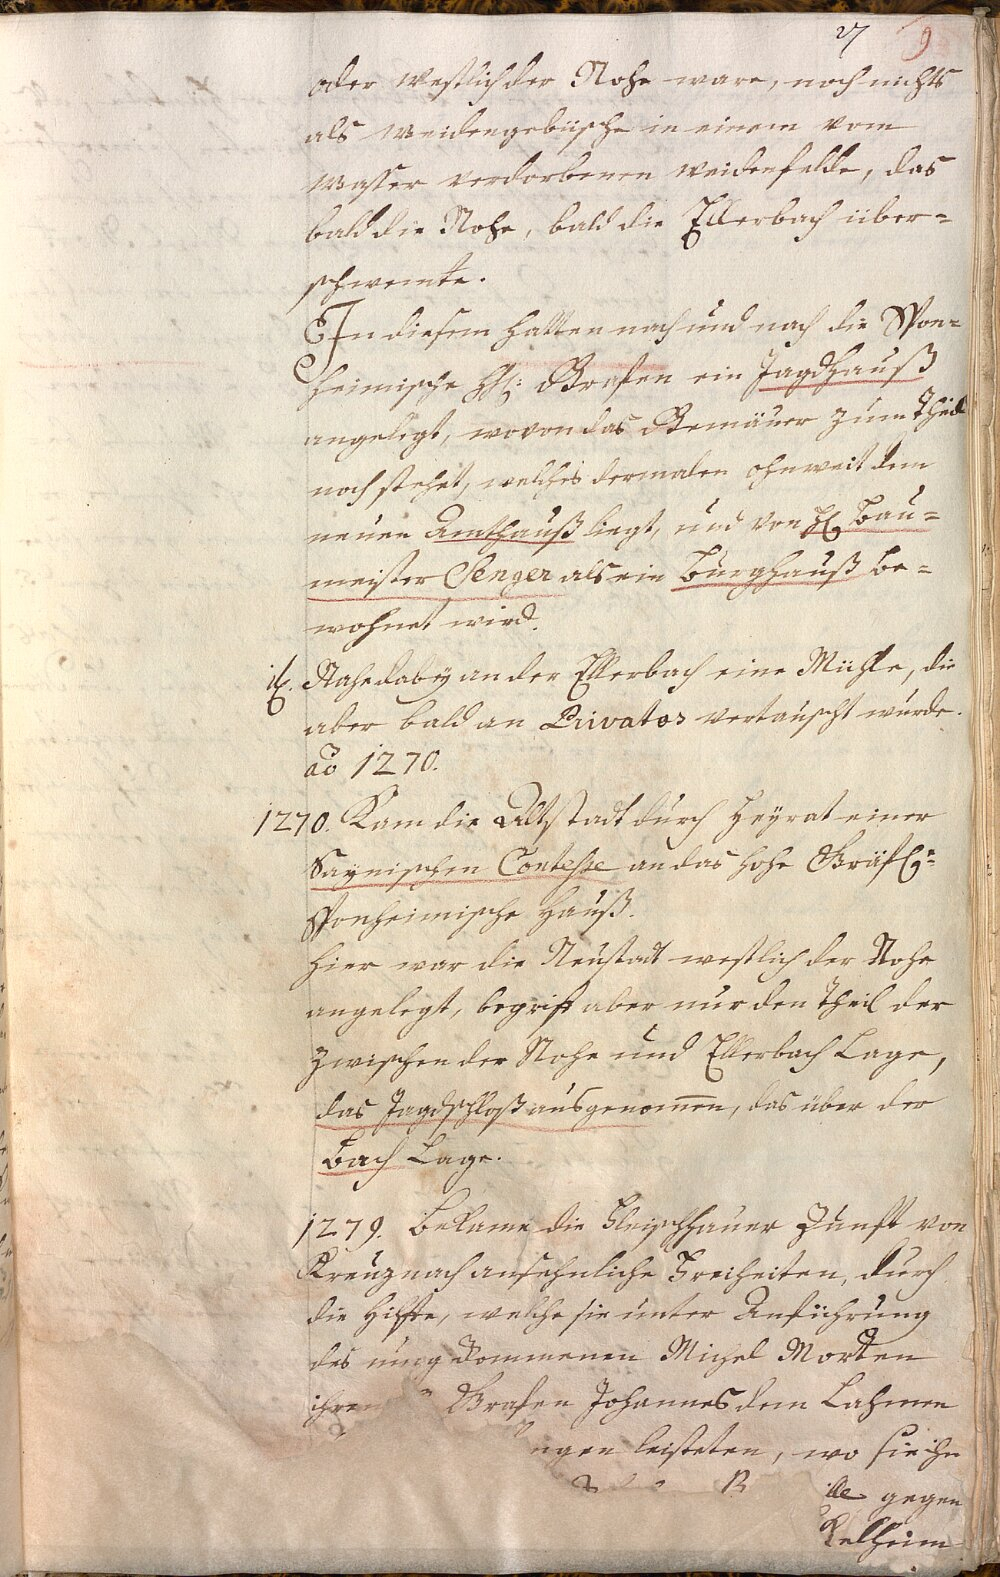 27 9
oder westlich der Nohe ware, noch nichts
als weidengebüsche in einem vom
Wasser verdorbenen weidenfelde, das
bald die Nohe, bald die Ellerbach über-
schwemte.
In diesem hatten nach und nach die Spon-
heimische HH: Grafen ein Jagdhauß
angelegt, wovon das Gemäuer zum Theil
noch stehet, welches dermalen ohnweit dem
neuen Amthauß liegt, und von H. Bau-
meister Senger als ein Burghauß be-
wohnet wird.
it. Nahe daby an der Ellerbach eine Mühle, die
aber bald an Privatos vertauscht wurde.
ao 1270.
1270. Kam die Altstadt durch Heyrat einer
Saynischen Contesse an das hohe Gräfl.e
Sponheimische Hauß.
Hier war die Neustadt westlich der Nohe
angelegt, begrift aber nur den Theil der
zwischen der Nohe und Ellerbach Lage,
das Jagdschloß ausgenommen, das über der
Bach Lage.
1279. Bekame die Fleischhauer Zunft von
Kreuznach ansehnliche Freiheiten, durch
die Hilfte, welche sie unter Anführung
des umgekommenen Michel Morten
ihren Grafen Johannes dem Lahmen
ngen leisteten, wo sie ihn
gegen